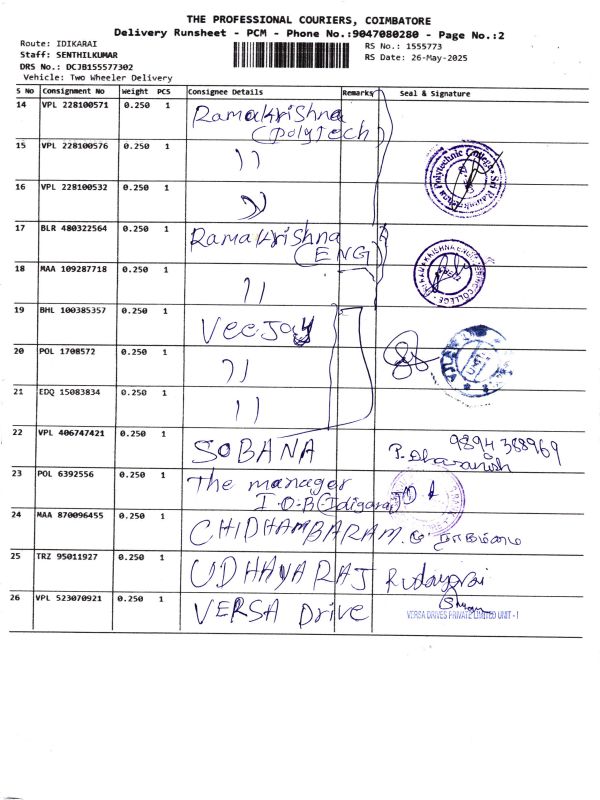 THE PROFESSIONAL COURIERS, COIMBATORE
Delivery Runsheet - PCM - Phone No.:9047080280 - Page No.:2
Route: IDIKARAI
RS No.: 1555773
Staff: SENTHILKUMAR
RS Date: 26-May-2025
DRS No.: DCJB155577302
Vehicle: Two Wheeler Delivery
S No Consignment No Weight PCS Consignee Details Remarks Seal & Signature
14 VPL 228100571 0.250 1 Ramakrishna
(Polytech)
15 VPL 228100576 0.250 1 ״
16 VPL 228100532 0.250 1 ״
17 BLR 480322564 0.250 1 Ramakrishna
(ENG)
18 MAA 109287718 0.250 1 ״
19 BHL 100385357 0.250 1 Veejay
20 POL 1708572 0.250 1 ״
21 EDQ 15083834 0.250 1 ״
22 VPL 406747421 0.250 1 SOBANA P. Dharanish 9894388969
23 POL 6392556 0.250 1 The manager
I.O.B (Idigarai)
24 MAA 870096455 0.250 1 CHIDHAMBARAM.
25 TRZ 95011927 0.250 1 UDHAYARAJ
26 VPL 523070921 0.250 1 VERSA Drive
VERSA DRIVES PRIVATE LIMITED UNIT - I